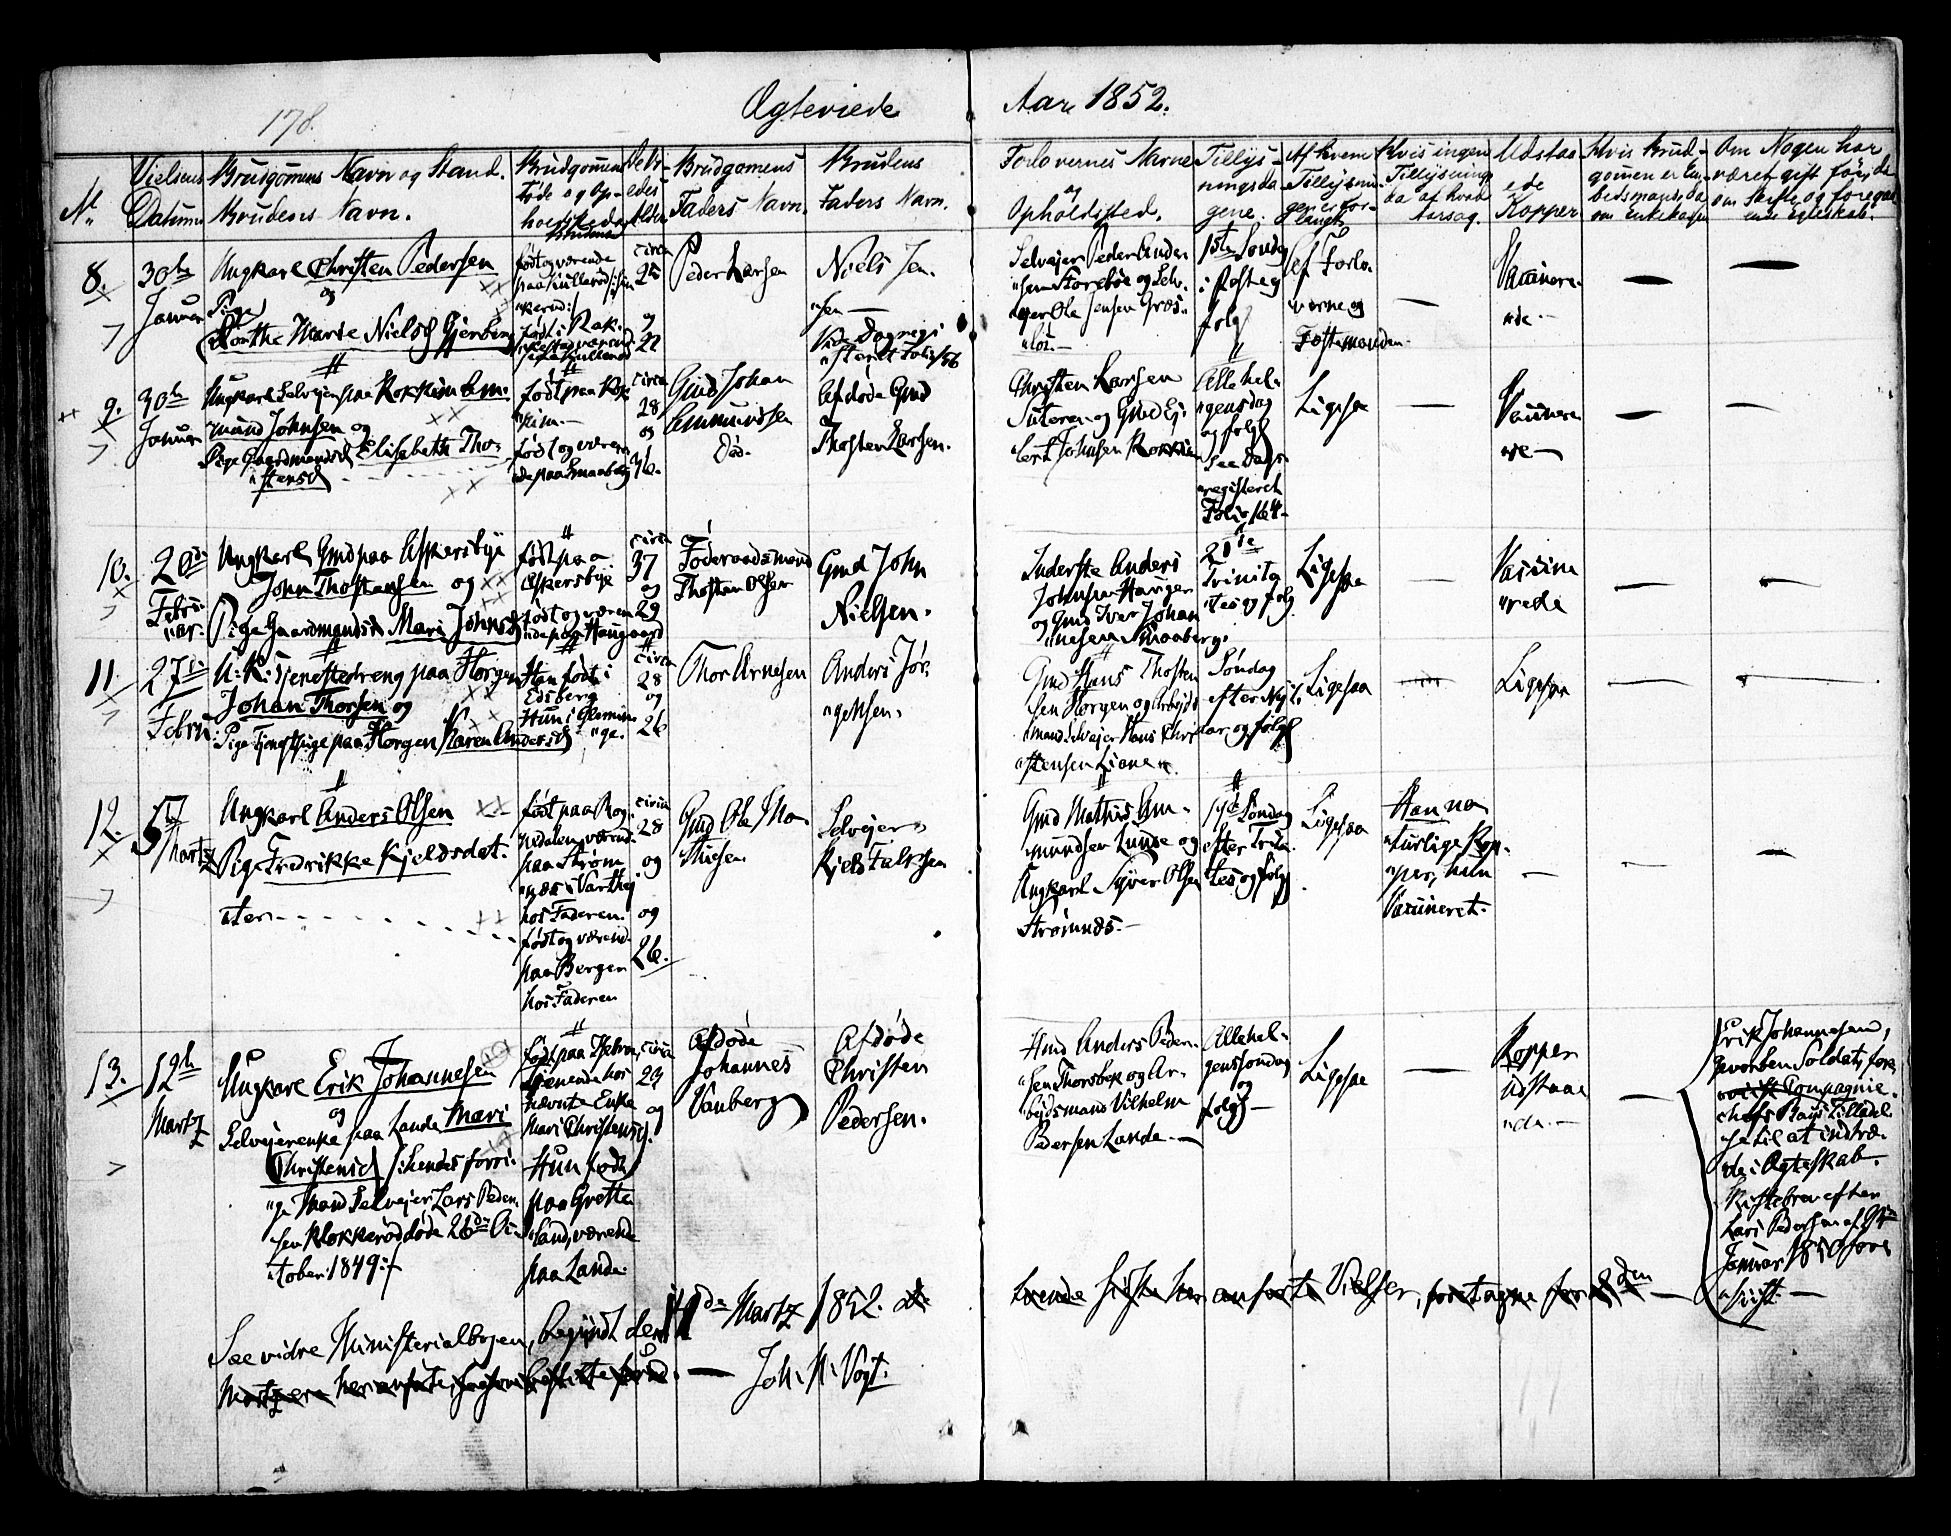 178.
Ægteviede
Aar 1852.
No
Vielsens Datum
Brudgomens Navn og Stand.
Brudens Navn.
Brudgomens Føde og Op-
holdssted og Brudens
Deres Alder
Brudgomens Faders Navn.
Brudens Faders Navn.
Forlovernes Navne og Opholdssted.
Tillys-
ningsda-
gene.
Af hvem Tillysnin-
gen er for-
langt
Hvis ingen Tillysning
da af hvad Aarsag.
Udstaa-
ede
Kopper
Hvis Brud-
gomen er Em-
bedsmand, da
om Enkekasse
Om Nogen har
været gift før, da
om Skifte og foregaa-
ende Egteskab.
8.
30te
Januar
Ungkarl Christen Pedersen
og
Pige
Dorthe Marie Nielsd Gjerberg
født og værende
circa
25
og
22
Peder Larsen
Niels Jen-
"sen —
Vide Dagregi-
"steret Folio 156
Selvejer Peder Ander-
"sen Storebøe og Selv-
"ejer Ole Jensen Græs-
1ste Søndag
i Faste og
følg
Af Forlo-
verne og
Fæstemanden.
—
Vaccinere-
"de —
—
—
9.
30te
Januar
Ungkarl Selvejer paa Kokkim Am-
"mund Johnsen og
Pige Gaardmandsd Elisabeth Tho-
"stensd
født paa Kok-
"kim. —
født og væren-
de paa Smaaberg
circa
28
og
36.
Gmd Johan
Ammundsen
Død.
Afdøde Gmd
Thosten Larsen.
Christen Larsen
Sutoren og Gmd Ej-
"lert Johnsen Kokkim
Allehel-
"gensdag
og følg
See Dags-
"registeret
Folio 164.
Ligesaa
—
Vaccinere-
"de —
—
—
10.
20de
Febru-
"ar.
Ungkarl Gmd paa Askersbye
John Thostensen og
Pige Gaardmandsd Mari Johnsd
født paa
Askersbye
født og væren-
de paa Haugaard
circa
37
og
29
Føderaadsmand
Thosten Olsen
Gmd John
Nielsen.
Inderste Anders
Johnsen Haugen
og Gmd Iver Johan-
"nesen Smaaberg.
21de
Trinita-
"tes og følg
Ligesaa
—
Vaccine-
"rede
—
—
11.
27de
Febru:
U: K: Tjenestedreng paa Horgen
Johan Thorsen og
Pige Tjenestpige paa Horgen Karen Andersd
Han født i
Edsberg
Hun i Glemmin-
"ge.
circa
28
og
26
Thor Arnesen
Anders Jør-
"gensen.
Gmd Hans Thosten-
sen Horgen og Arbejds-
mand Selvejer Hans Chri-
"stensen Liane
Søndag
efter Nyt-
aar og følg
Ligesaa
—
Ligesaa
—
—
12.
5te
Martz
Ungkarl Anders Olsen
Pige Fredrikke Kjeldsdat-
"ter
paa Strøm-
"næs i Varthej
hos Faderen.
født og værend-
paa Bergen
hos Faderen
circa
28
og
og
26.
Gmd Ole Tho-
Selvejer
Gmd Mathis Am-
mundsen Lunde og
Ungkarl Syver Olsen
Strømnæs. —
19de Søndag
efter Trini-
tes og følg
Ligesaa
Han na-
"turlige Kop-
"per, hun
Vaccineret.
—
—
—
13.
12te
Martz
Ungkarl Erik Johannesen
og
Selvejerenke paa Lande Mari
Christensd /: hendes forri-
"ge Mand Selvejer Lars Peder-
sen Klokkerød døde 26de Oc-
"tober 1849 :/
Tjenende hos
nævnte Enke
Mari Christensd.
Hun født
paa Grette-
"land, værende
paa Lande.
circa
29
og
Afdøde
Johannes
Vanberg
Afdøde
Christen
Pedersen.
Hmd Anders Peder-
"sen Thorsbek og Ar-
bejdsmand Vilhelm
Pedersen Lande. —
Allehel-
genssøndag
og
følg —
Ligesaa
—
Kopper
Udstaa-
"ede. —
—
Erik Johannesen,
gevorben Soldat, fore-
"viist Compagnie-
"chefs Tilladel-
se til at indtræ-
"de i Ægteskab.
Skiftebrev efter
Lars Pedersen af 9de
Januar 1850 fore-
"viist. —
See vidre Ministerialbogen, begyndt den 11de Martz 1852.
Joh. N. Vogt.